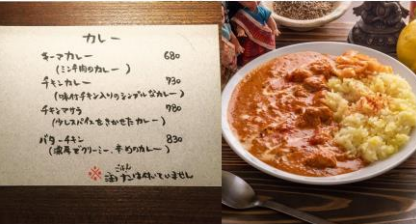 カレー
キーマカレー 680
(ミンチ肉のカレー)
チキンカレー 730
(味付チキン入りのシンプルなカレー)
チキンマサラ 780
(少しスパイスをきかせたカレー)
バターチキン 830
(濃厚でクリーミー、辛めのカレー)